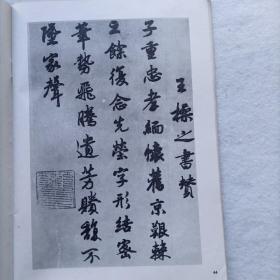 王操之書贊
子重忠孝緬懷舊京艱棘
之餘復念先塋字形結密
筆勢飛騰遺芳賸馥不
墜家聲
44